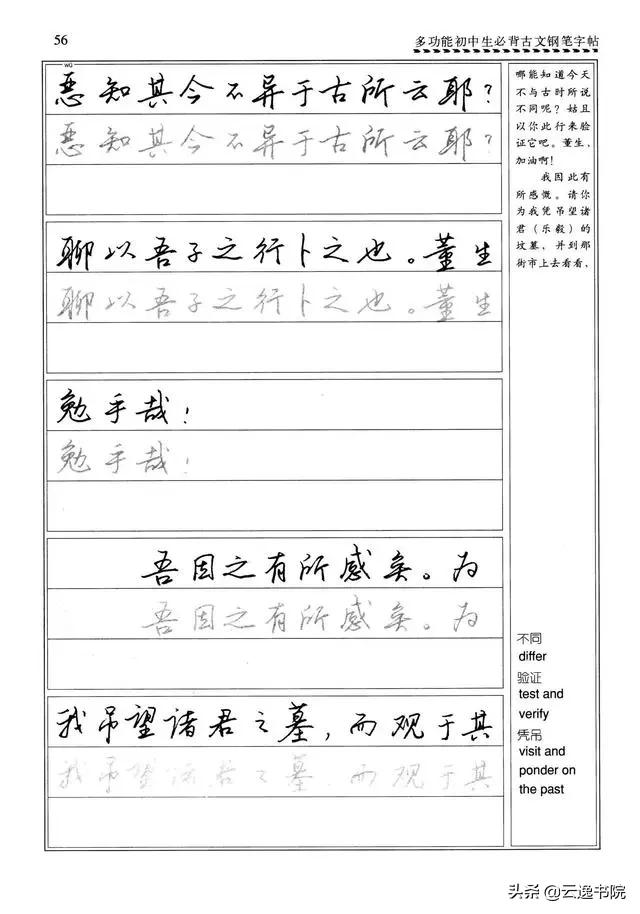 56
多功能初中生必背古文钢笔字帖
WG
恶知其今不异于古所云耶？
恶知其今不异于古所云耶？
聊以吾子之行卜之也。董生
聊以吾子之行卜之也。董生
勉乎哉！
勉乎哉！
吾因之有所感矣。为
吾因之有所感矣。为
我吊望诸君之墓，而观于其
我吊望诸君之墓，而观于其
哪能知道今天
不与古时所说
不同呢？姑且
以你此行来验
证它吧。董生，
加油啊！
我因此有
所感慨。请你
为我凭吊望诸
君（乐毅）的
坟墓，并到那
街市上去看看，
不同
differ
验证
test and
verify
凭吊
visit and
ponder on
the past
头条@云逸书院